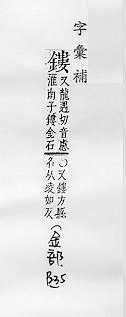 字彙補
鏤
又龍遇切音慮
淮南子鏤金石
〇又鏤方縣
名从夌如灰
(金部
B35